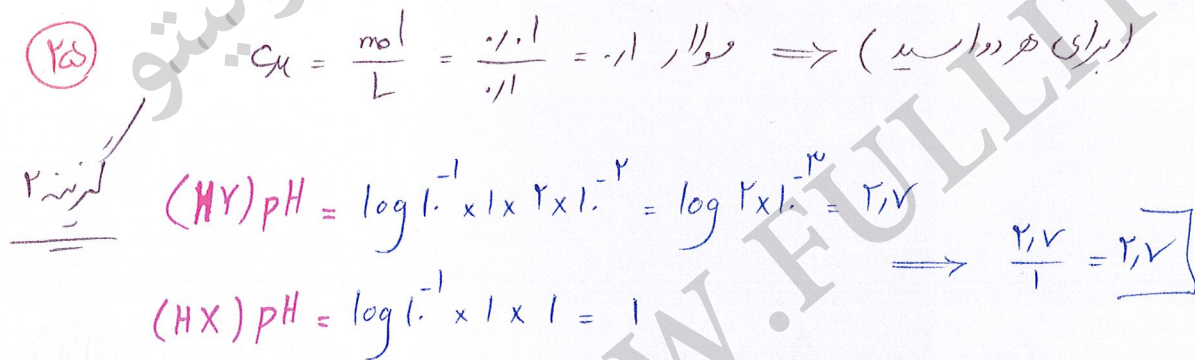 ۲۵
C_M = mol/L = ۰/۰۱ / ۰/۱ = ۰/۱ مولار ⇒ (برای هر دو اسید)
گزینه ۲
(HY) pH = log ۱۰^-۱ × ۱ × ۲ × ۱۰^-۲ = log ۲×۱۰^-۳ = ۲,۷
⇒ ۲,۷ / ۱ = ۲,۷
(HX) pH = log ۱۰^-۱ × ۱ × ۱ = ۱
W.FULL